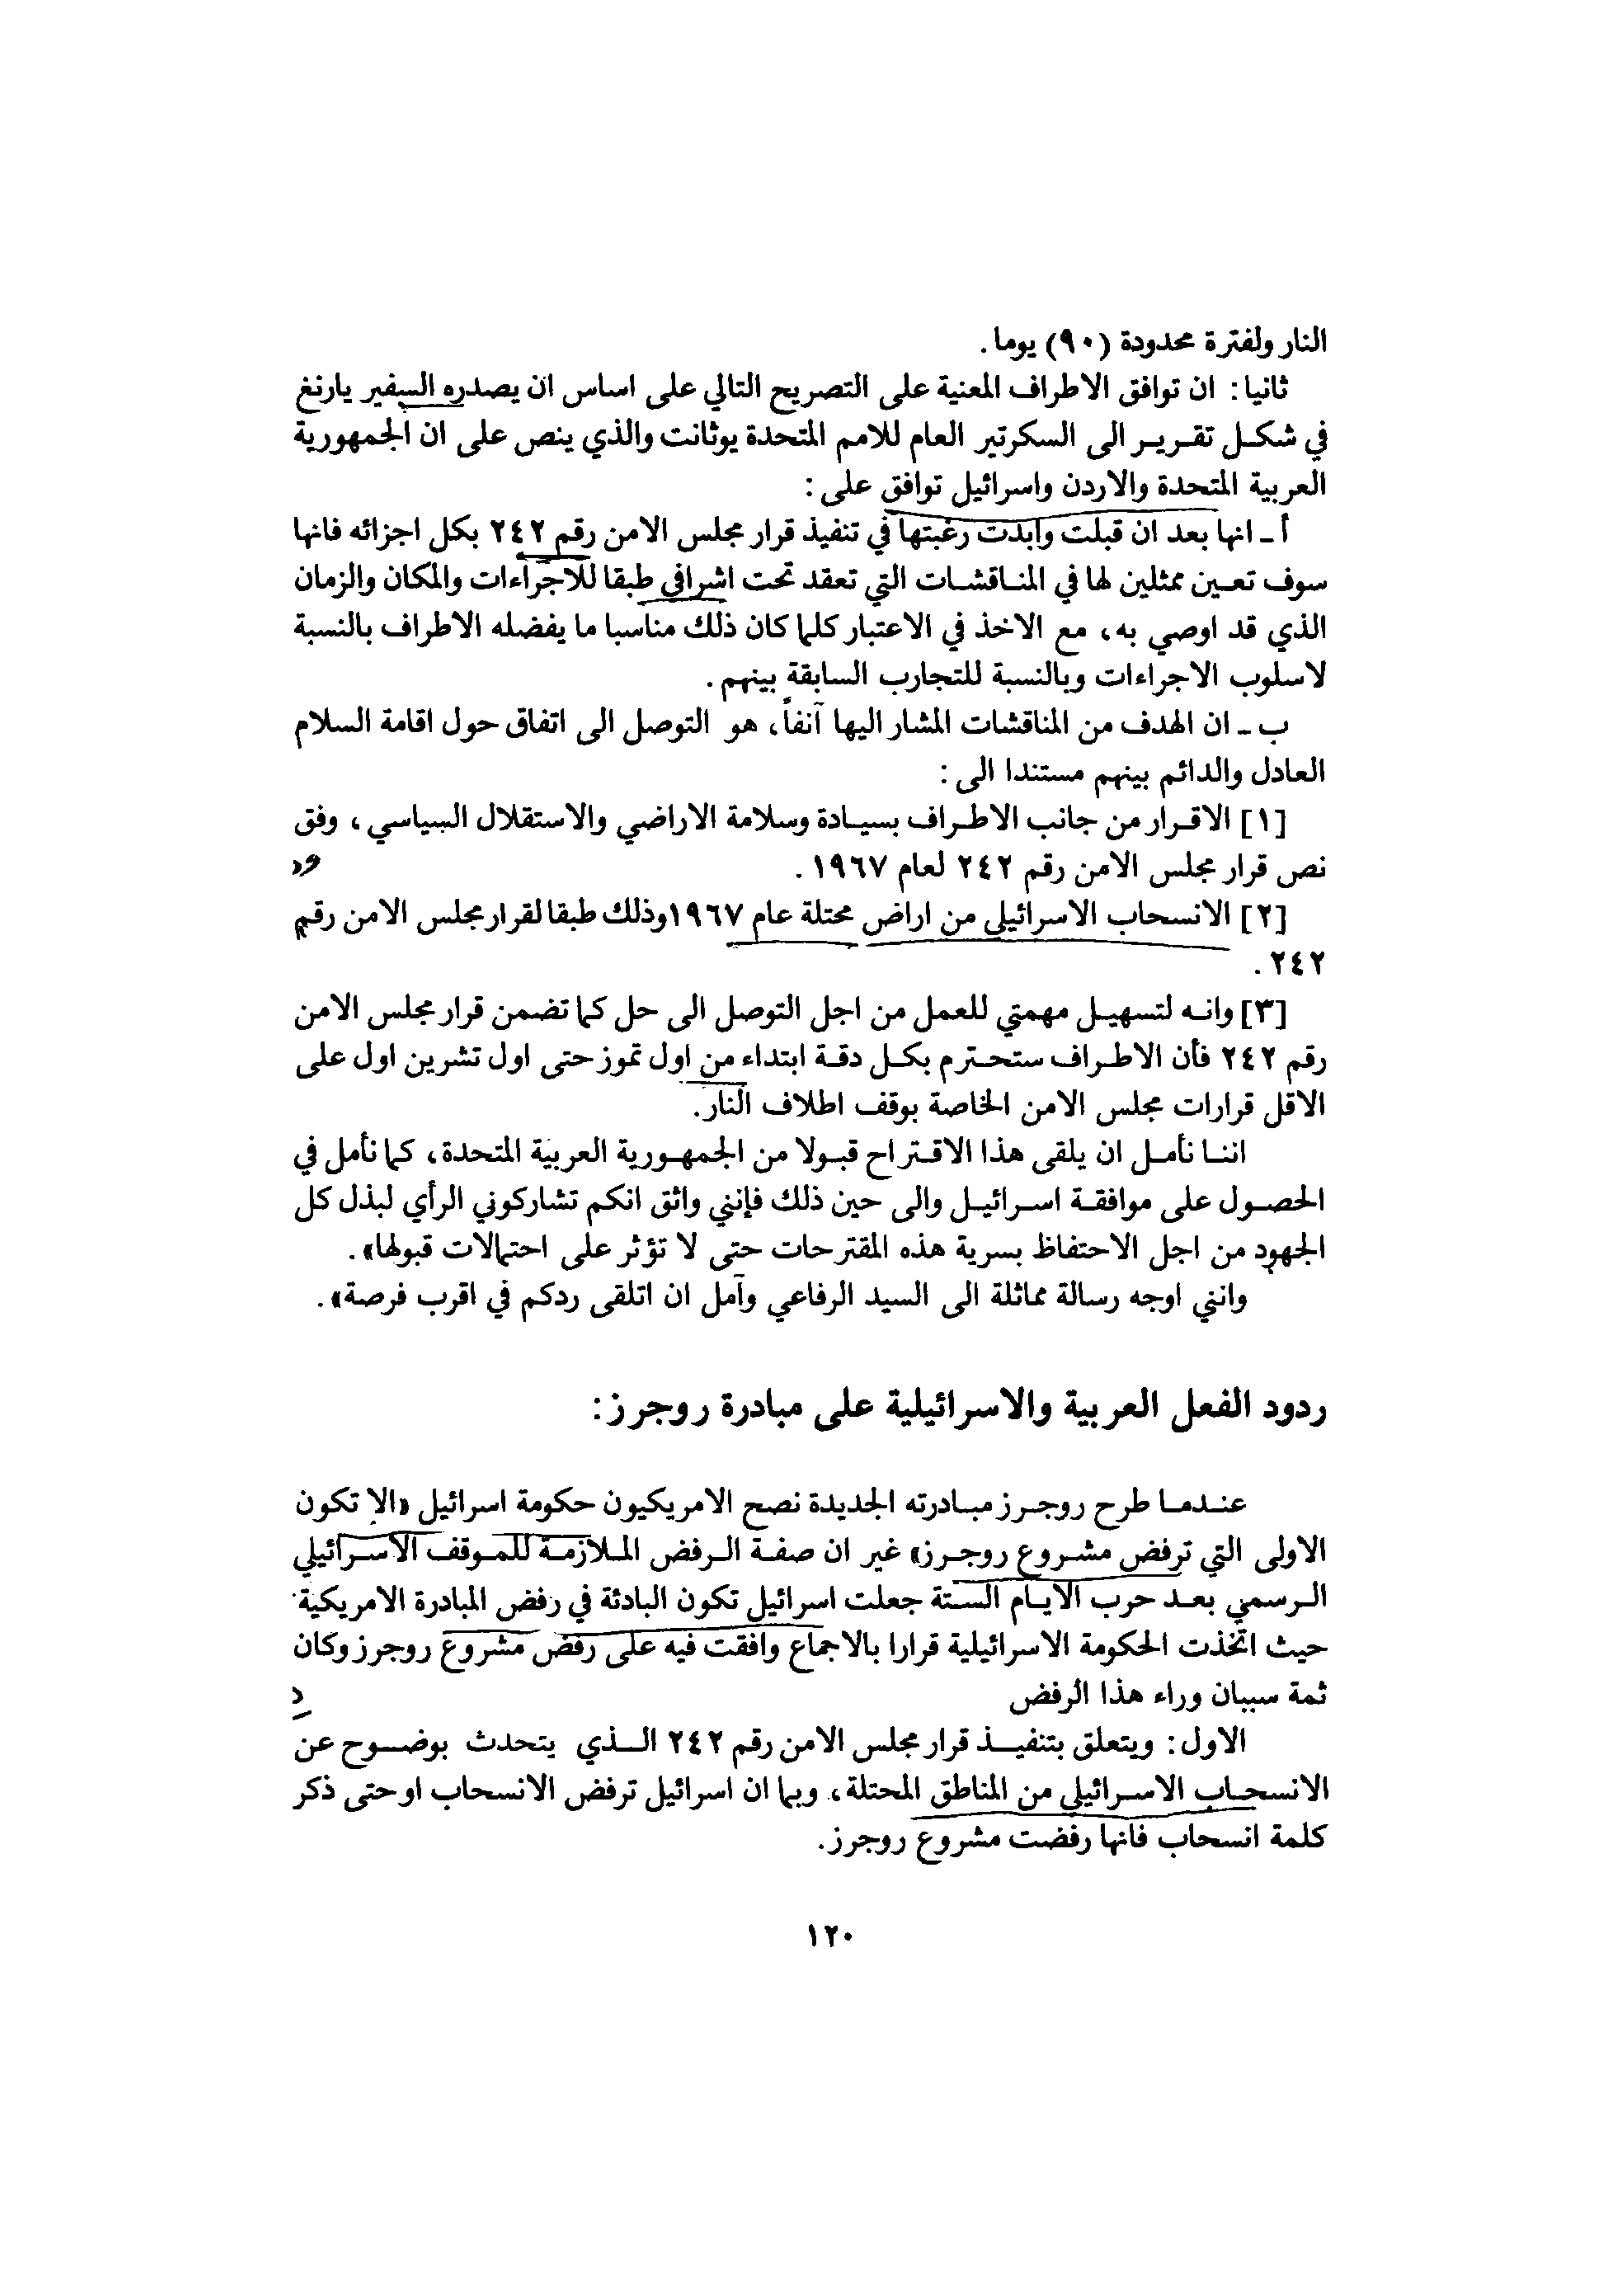 النار ولفترة محدودة (٩٠) يوما.
ثانيا: ان توافق الاطراف المعنية على التصريح التالي على اساس ان يصدره السفير يارنغ
في شكل تقرير الى السكرتير العام للامم المتحدة يوثانت والذي ينص على ان الجمهورية
العربية المتحدة والاردن واسرائيل توافق على:
أ ـ انها بعد ان قبلت وابدت رغبتها في تنفيذ قرار مجلس الامن رقم ٢٤٢ بكل اجزائه فانها
سوف تعين ممثلين لها في المناقشات التي تعقد تحت اشرافي طبقا للاجراءات والمكان والزمان
الذي قد اوصي به، مع الاخذ في الاعتبار كلما كان ذلك مناسبا ما يفضله الاطراف بالنسبة
لاسلوب الاجراءات وبالنسبة للتجارب السابقة بينهم.
ب ـ ان الهدف من المناقشات المشار اليها آنفاً، هو التوصل الى اتفاق حول اقامة السلام
العادل والدائم بينهم مستندا الى:
[١] الاقرار من جانب الاطراف بسيادة وسلامة الاراضي والاستقلال السياسي، وفق
نص قرار مجلس الامن رقم ٢٤٢ لعام ١٩٦٧.
[٢] الانسحاب الاسرائيلي من اراض محتلة عام ١٩٦٧ وذلك طبقا لقرار مجلس الامن رقم
٢٤٢.
[٣] وانه لتسهيل مهمتي للعمل من اجل التوصل الى حل كما تضمن قرار مجلس الامن
رقم ٢٤٢ فأن الاطراف ستحترم بكل دقة ابتداء من اول تموز حتى اول تشرين اول على
الاقل قرارات مجلس الامن الخاصة بوقف اطلاف النار.
اننا نأمل ان يلقى هذا الاقتراح قبولا من الجمهورية العربية المتحدة، كما نأمل في
الحصول على موافقة اسرائيل والى حين ذلك فإنني واثق انكم تشاركوني الرأي لبذل كل
الجهود من اجل الاحتفاظ بسرية هذه المقترحات حتى لا تؤثر على احتمالات قبولها».
وانني اوجه رسالة مماثلة الى السيد الرفاعي وآمل ان اتلقى ردكم في اقرب فرصة».
ردود الفعل العربية والاسرائيلية على مبادرة روجرز:
عندما طرح روجرز مبادرته الجديدة نصح الامريكيون حكومة اسرائيل «الا تكون
الاولى التي ترفض مشروع روجرز» غير ان صفة الرفض الملازمة للموقف الاسرائيلي
الرسمي بعد حرب الايام الستة جعلت اسرائيل تكون البادئة في رفض المبادرة الامريكية
حيث اتخذت الحكومة الاسرائيلية قرارا بالاجماع وافقت فيه على رفض مشروع روجرز وكان
ثمة سببان وراء هذا الرفض
الاول: ويتعلق بتنفيذ قرار مجلس الامن رقم ٢٤٢ الذي يتحدث بوضوح عن
الانسحاب الاسرائيلي من المناطق المحتلة، وبما ان اسرائيل ترفض الانسحاب او حتى ذكر
كلمة انسحاب فانها رفضت مشروع روجرز.
١٢٠